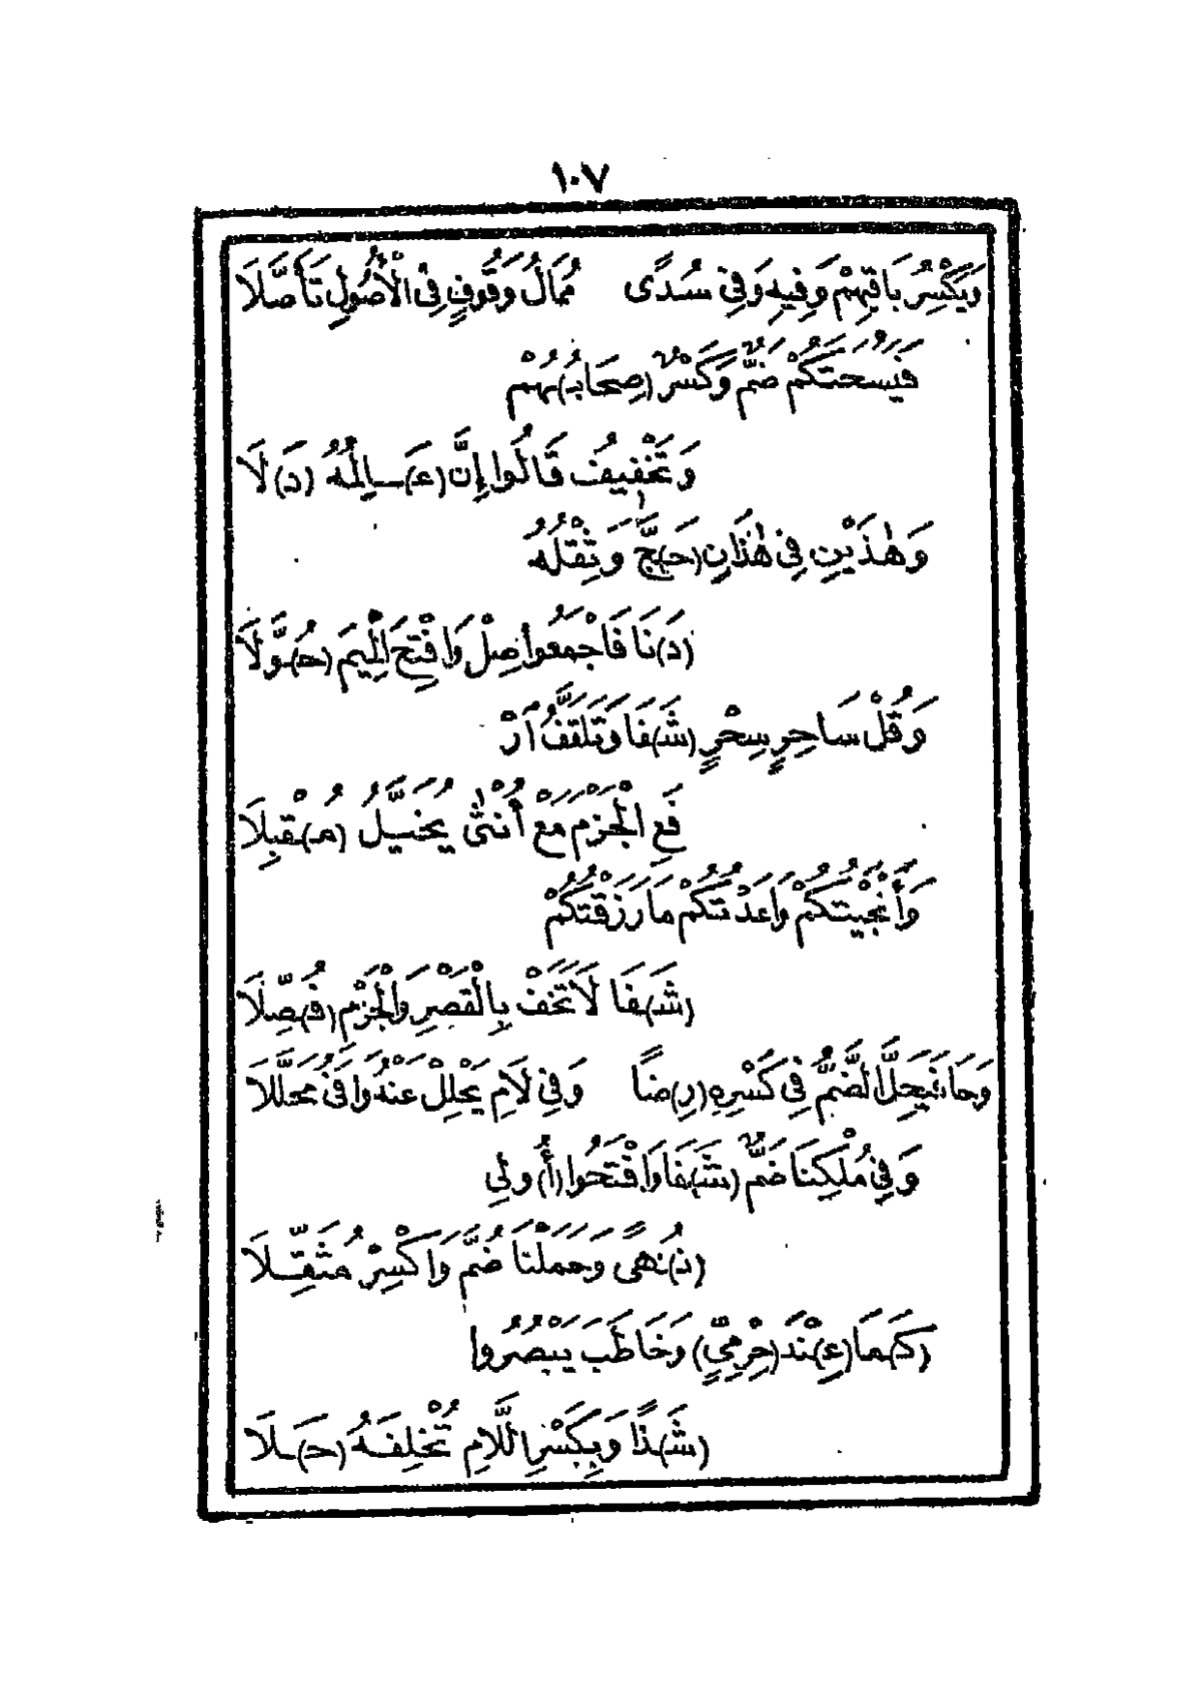 ١٠٧
وَيَكْسِرُ بَاقِيهِمْ وَفِيهِ وَفِي سُدًى    مُمَالُ وُقُوفٍ فِي الْأُصُولِ تَأَصَّلَا
فَيُسْحِتَكُمْ ضَمٌّ وَكَسْرٌ (صِحَابُـ)ـهُمْ
وَتَخْفِيفُ قَالُوا إِنَّ (عَـ)ـالِمُهُ (دَ)لَا
وَهٰذَيْنِ فِي هٰذَانِ (حَـ)ـجَّ وَثِقْلُهُ
(دَ)نَا فَاجْمَعُوا صِلْ وَافْتَحِ الْمِيمَ (حُـ)ـوَّلَا
وَقُلْ سَاحِرٍ سِحْرٍ (شَـ)ـفَا وَتَلَقَّفُ ارْ
فَعِ الْجَزْمَ مَعْ أُنْثٰى يُخَيَّلُ (مُـ)ـقْبِلَا
وَأَنْجَيْتُكُمْ وَاعَدْتُكُمْ مَا رَزَقْتُكُمْ
(شَـ)ـفَا لَا تَخَفْ بِالْقَصْرِ وَالْجَزْمِ (فُـ)ـصِّلَا
وَحَا فَيَحِلَّ الضَّمُّ فِي كَسْرِهِ (رِ)ضًا    وَفِي لَامِ يَحْلِلْ عَنْهُ وَافَى مُحَلَّلَا
وَفِي مُلْكِنَا ضَمٌّ (شَـ)ـفَا وَافْتَحُوا (أُ)ولِي
(نُـ)ـهًى وَحَمَلْنَا ضُمَّ وَاكْسِرْ مُثَقِّلَا
(كَـ)ـمَا (عِـ)ـنْدَ (حِرْمِيٍّ) وَخَاطَبَ يَبْصُرُوا
(شَـ)ـذًا وَبِكَسْرِ اللَّامِ تُخْلِفَهُ (حَـ)ـلَا